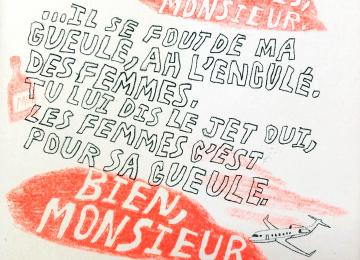 MONSIEUR.
...IL SE FOUT DE MA
GUEULE, AH L'ENCULÉ.
DES FEMMES.
TU LUI DIS LE JET OUI,
LES FEMMES C'EST
POUR SA GUEULE.
BIEN,
MONSIEUR